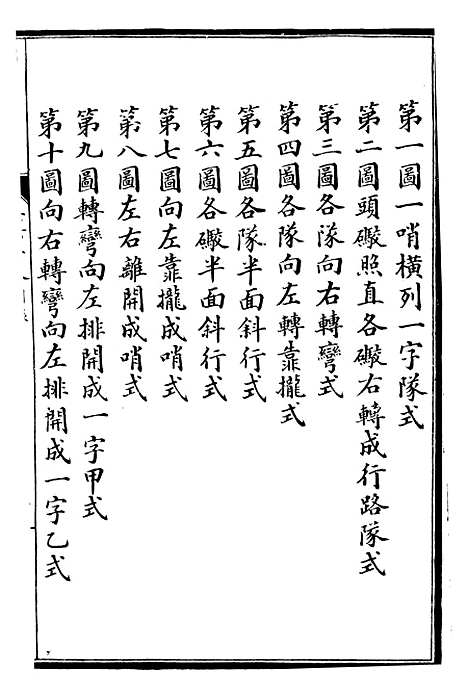 第一圖一哨橫列一字隊式
第二圖頭礮照直各礮右轉成行路隊式
第三圖各隊向右轉彎式
第四圖各隊向左轉靠攏式
第五圖各隊半面斜行式
第六圖各礮半面斜行式
第七圖向左靠攏成哨式
第八圖左右離開成哨式
第九圖轉彎向左排開成一字甲式
第十圖向右轉彎向左排開成一字乙式